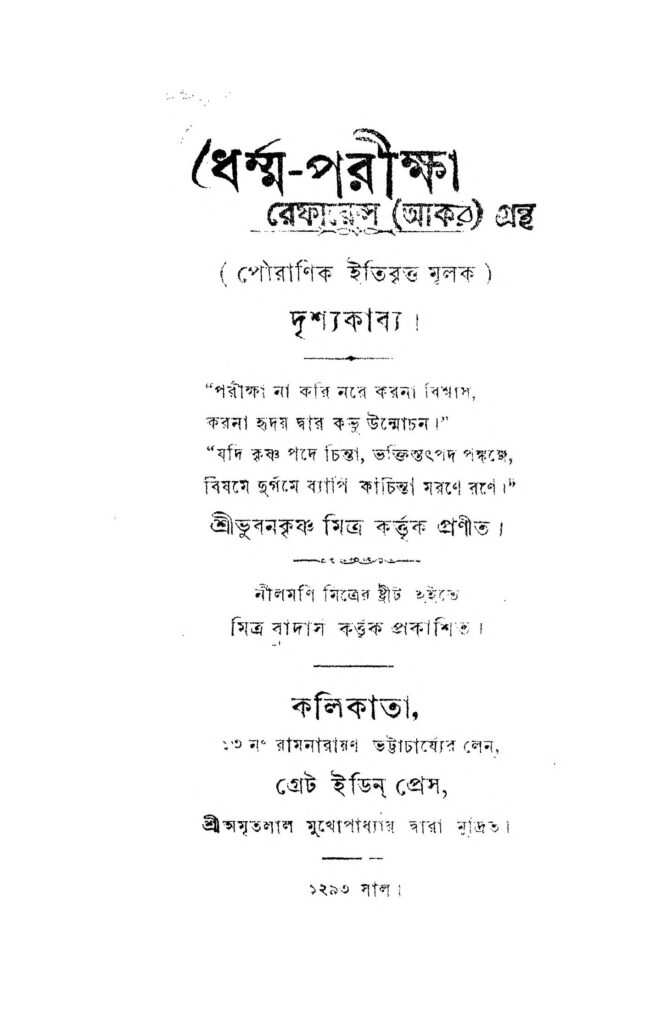 ধর্ম্ম-পরীক্ষা
রেফারেন্স (আকর) গ্রন্থ
( পৌরাণিক ইতিবৃত্ত মূলক )
দৃশ্যকাব্য।
“পরীক্ষা না করি নরে করনা বিশ্বাস,
করনা হৃদয় দ্বার কভু উন্মোচন।”
“যদি কৃষ্ণ পদে চিন্তা, ভক্তিস্তৎপদ পঙ্কজে,
বিষমে দুর্গমে ব্যাপি কাচিন্তা মরণে রণে।”
শ্রীভুবনকৃষ্ণ মিত্র কর্ত্তৃক প্রণীত।
নীলমণি মিত্রের ষ্ট্রীট হইতে
মিত্র ব্রাদার্স কর্ত্তৃক প্রকাশিত।
কলিকাতা,
১৩ নং রামনারায়ণ ভট্টাচার্য্যের লেন,
গ্রেট ইডিন্ প্রেস,
শ্রীঅমৃতলাল মুখোপাধ্যায় দ্বারা মুদ্রিত।
১২৯৩ সাল।